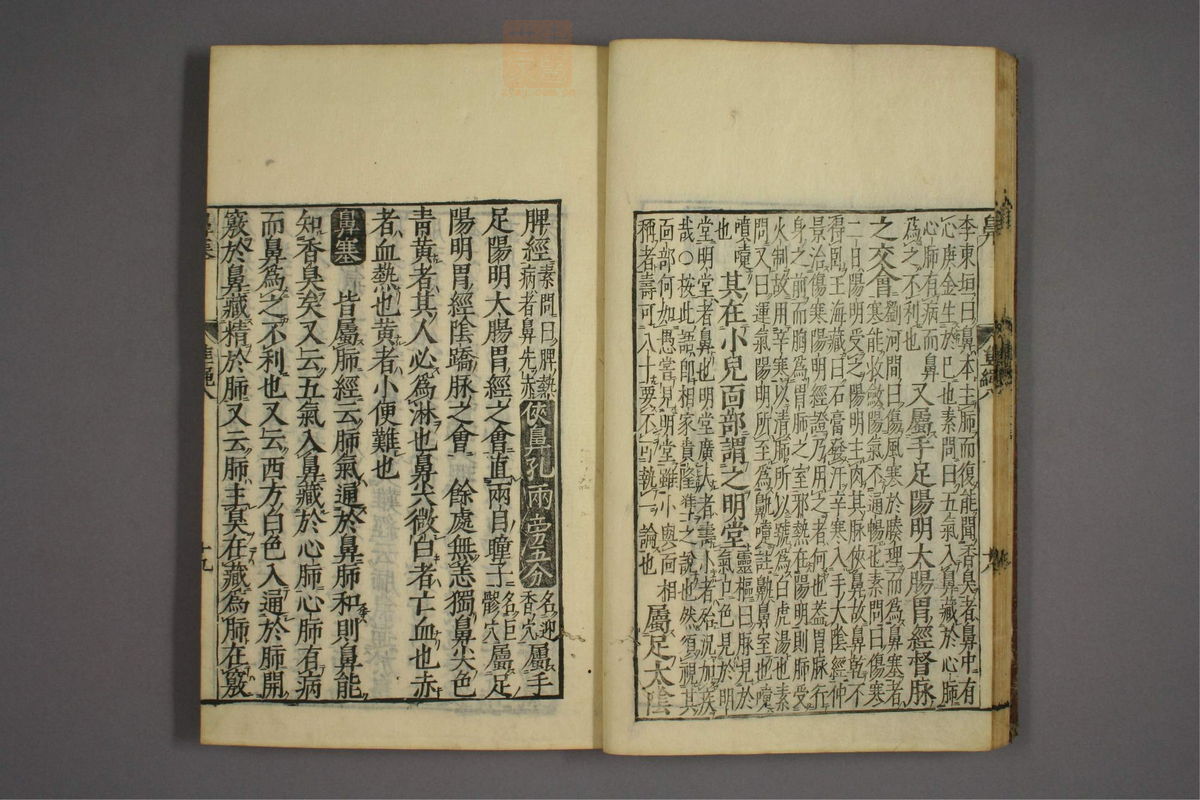 李東垣曰鼻本主肺而復能聞香臭者鼻中有
心庚金生於巳也素問曰五氣入鼻藏於心肺
心肺有病而鼻
為之不利也
又屬手足陽明大腸胃經督脉
之交會
劉河間曰傷風寒於腠理而為鼻塞者
寒能收斂陽氣不通暢也素問曰傷寒
二日陽明受之陽明主肉其脉俠鼻故鼻乾不
得臥王海藏曰石膏發汗辛寒入手太陰經仲
景治傷寒陽明經證乃用之者何也蓋胃脉行
身之前而胸為胃肺之室邪熱在陽明則肺受
火制故用辛寒以清肺所以號為白虎湯也素
問又曰運氣陽明所至為鼽嚏註鼽鼻窒也嚏
噴嚏
也
其在小兒面部謂之明堂
靈樞曰脉見於
氣口色見於明
堂明堂者鼻也明堂廣大者壽小者殆況加疾
哉〇按此語即相家貴隆準之說也然須視其
面部何如愚嘗見明堂雖小與面相
稱者壽可八十要不可執一論也
屬足太陰
脾經
素問曰脾熱
病者鼻先赤
俠鼻孔兩旁五分
名迎
香穴
屬手
足陽明大腸胃經之會直兩目瞳子
名巨
髎穴
屬足
陽明胃經陰蹻脉之會 餘處無恙獨鼻尖色
青黃者其人必為淋也鼻尖微白者亡血也赤
者血熱也黃者小便難也
鼻塞 皆屬肺經云肺氣通於鼻肺和則鼻能
知香臭矣又云五氣入鼻藏於心肺心肺有病
而鼻為之不利也又云西方白色入通於肺開
竅於鼻藏精於肺又云肺主臭在藏為肺在竅
鼻塞
十五